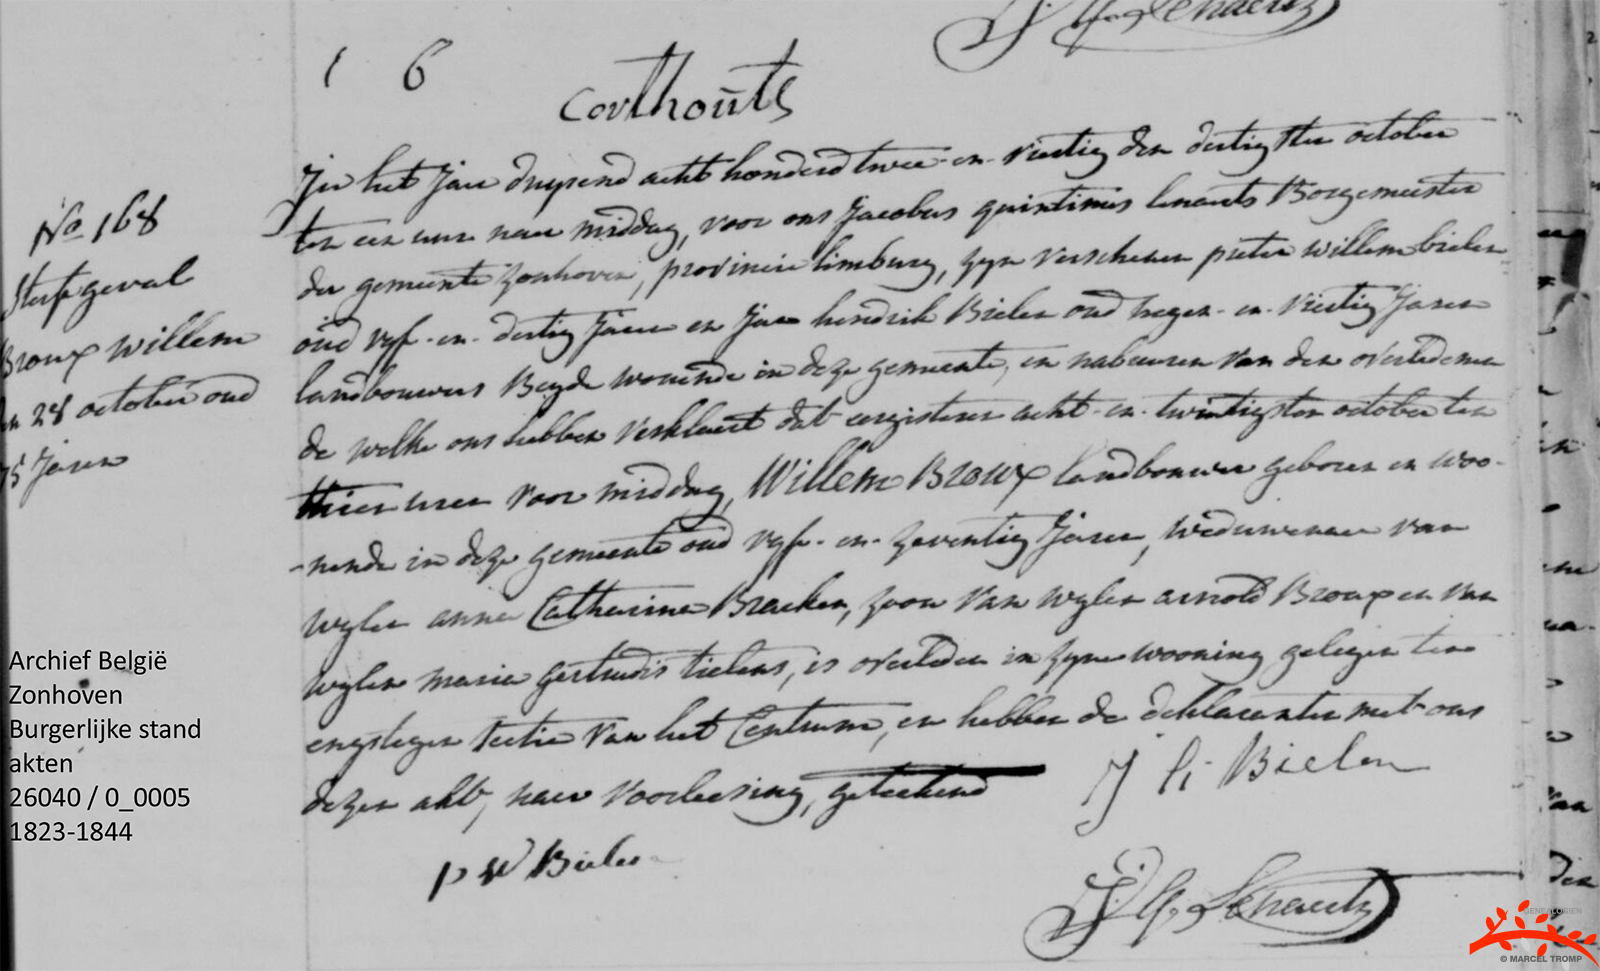 1 6
Corthouts
No 168
Sterfgeval
Broux Willem
den 28 october oud
75 Jaren
In het Jaer duysend acht honderd twee-en-viertig den dertigsten october
ten een uure naer middag, voor ons Jacobus quintinus lenaerts Borgemeester
der gemeente zonhoven, provincie limburg, zyn verschenen pieter willem bielen
oud vyf-en-dertig Jaren en Jan hendrik Bielen oud negen-en-viertig Jaren
landbouwers Beyde woonende in deze gemeente, en nabueren van den overledenen
de welke ons hebben verklaert dat eergisteren acht-en-twintigsten october ten
uren voor middag, Willem Broux landbouwer geboren en woo-
-nende in deze gemeente oud vyf-en-zeventig Jaren, weduwenaer van
wylen anna Catharina Bracken, zoon van wylen arnold Broux en van
wylen maria gertrudis tielens, is overleden in zyne wooning gelegen ten
engstegen sectie van het Centrum, en hebben de deklaranten met ons
dezen akt, naer voorleesing, geteekend
J h Bielen
p w Bielen
J. Q. Lenaerts
Archief België
Zonhoven
Burgerlijke stand
akten
26040 / 0_0005
1823-1844
GENEALOGIEN
© MARCEL TROMP